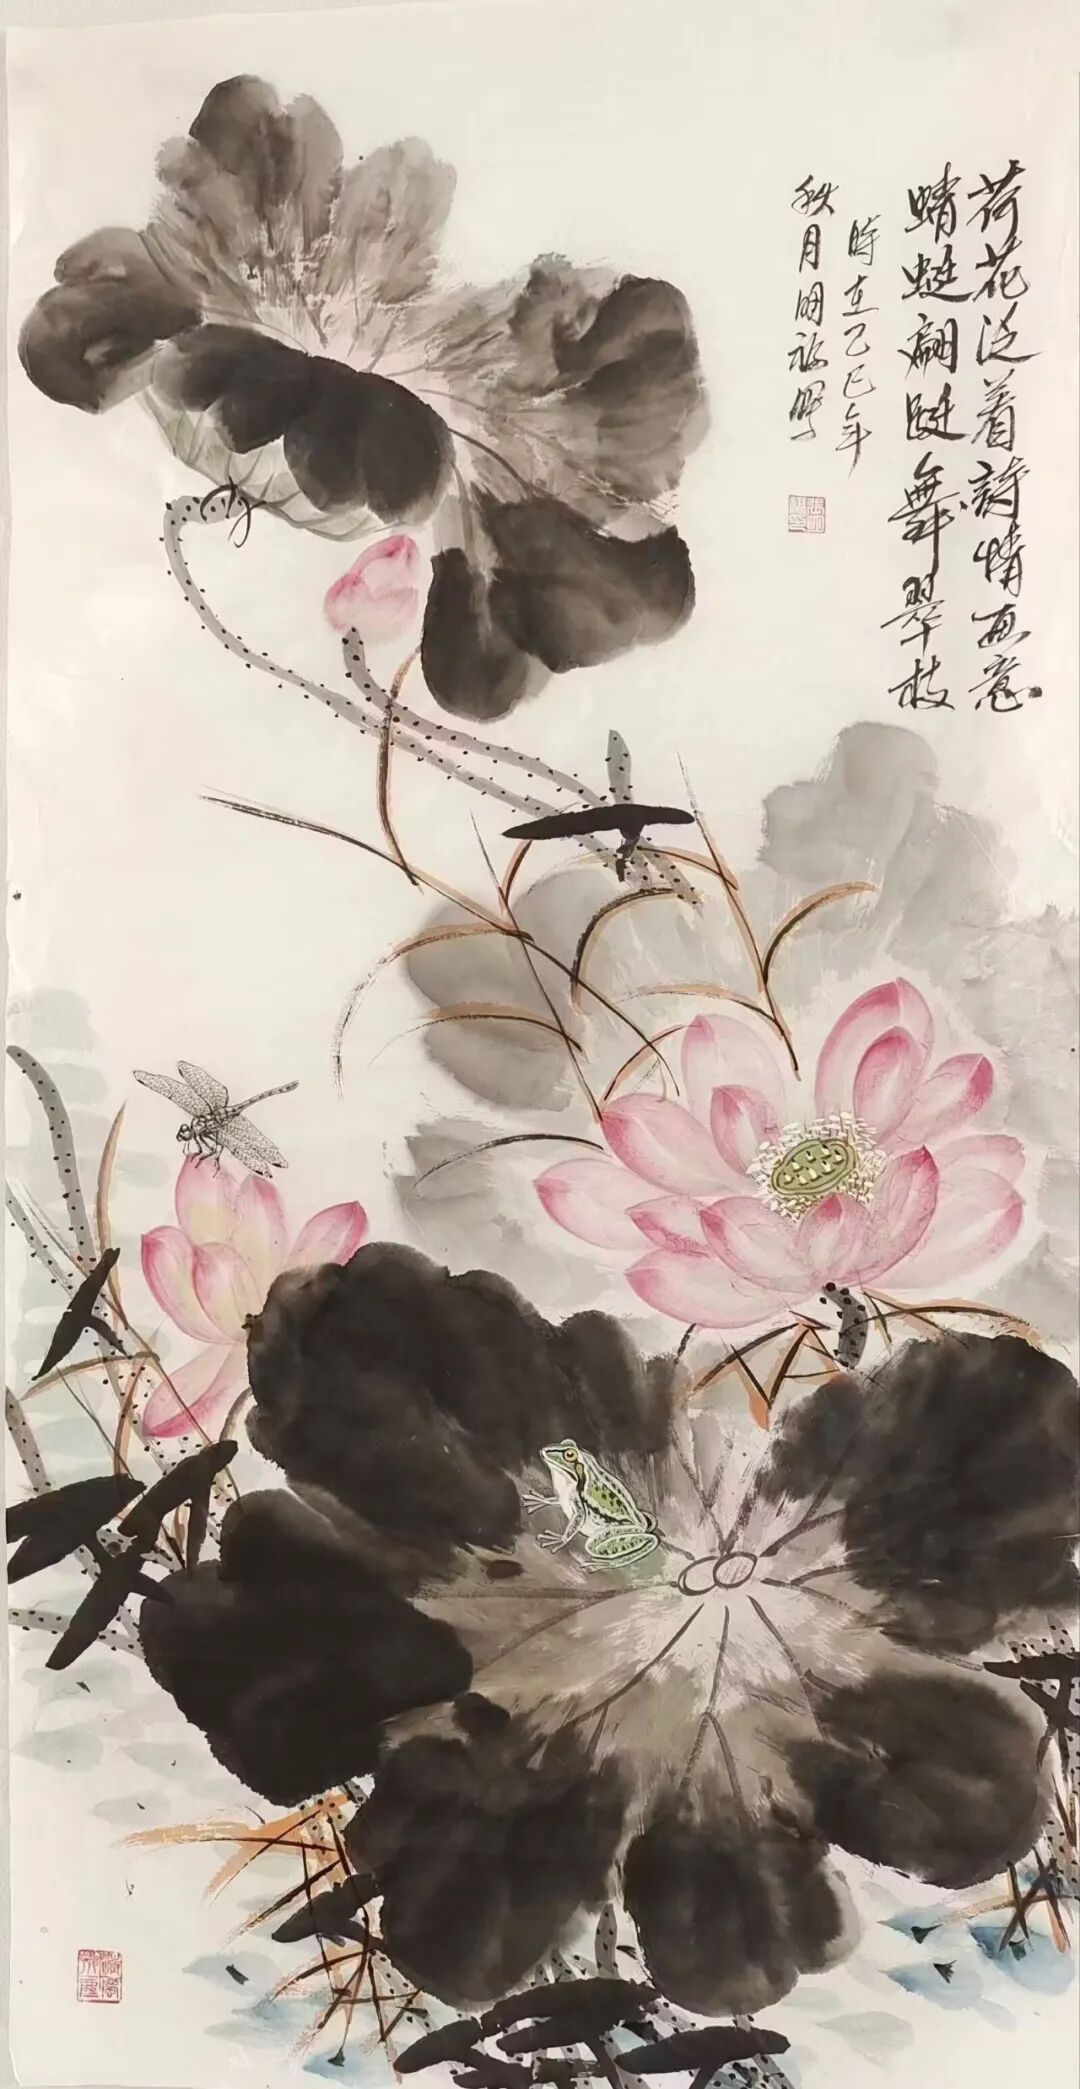 荷花泛着詩情画意
蜻蜓翩跹舞翠枝
時在乙巳年
秋月明